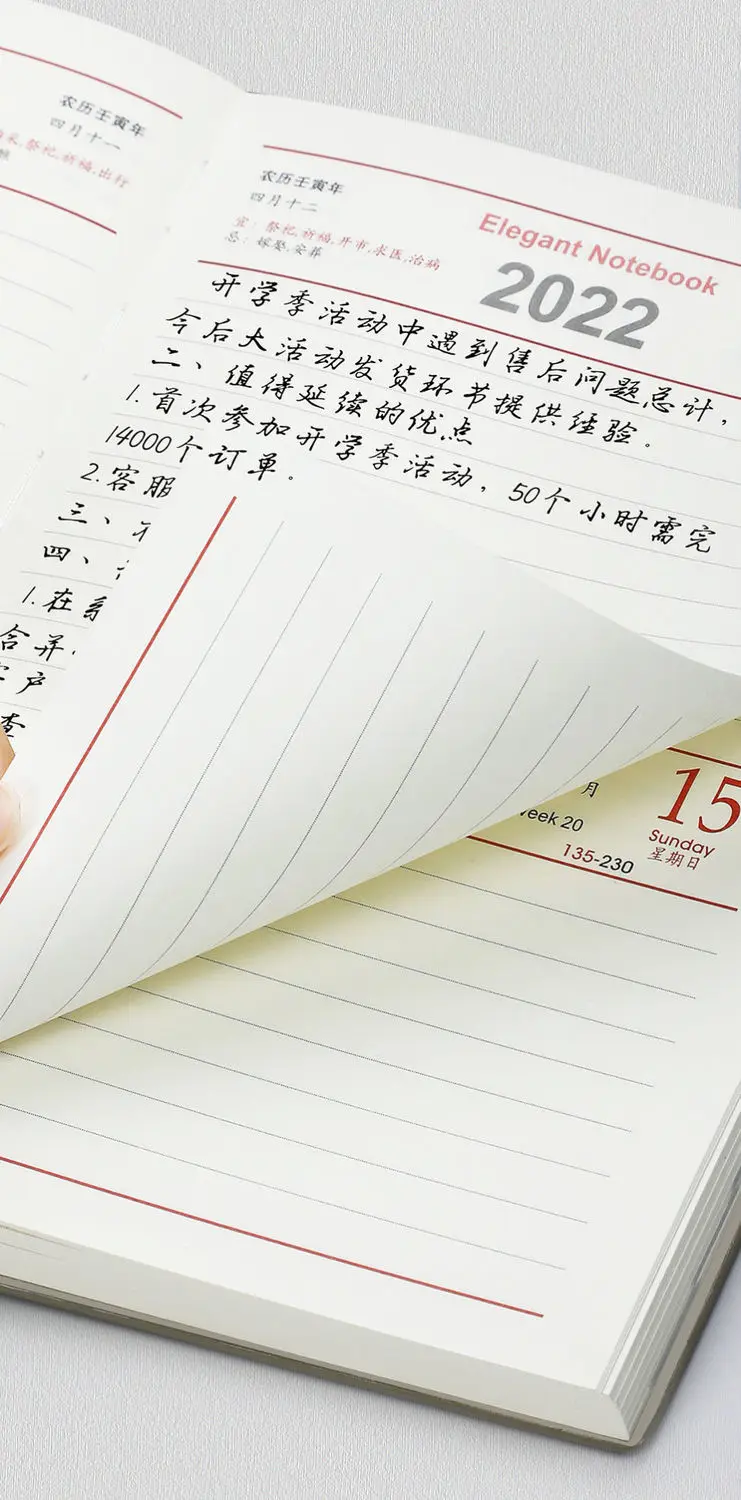 农历壬寅年
四月十一
祭祀,祈福,出行
农历壬寅年
四月十二
宜：祭祀,祈福,开市,求医,治病
忌：嫁娶,安葬
Elegant Notebook
2022
开学季活动中遇到售后问题总计，
今后大活动发货环节提供经验。
二、值得延续的优点
1.首次参加开学季活动，50个小时需完
14000个订单。
2.客服
三、
四、
1.在系
含并
客户
查
月
Week 20
135-230
15
Sunday
星期日